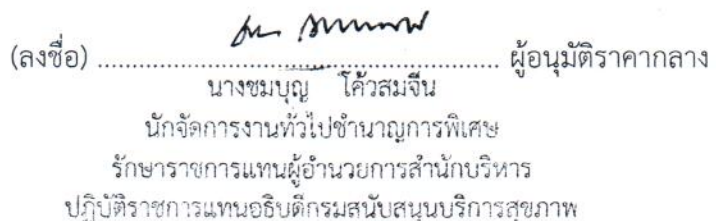 (ลงชื่อ) ............................................................ ผู้อนุมัติราคากลาง
นางชมบุญ โค้วสมจีน
นักจัดการงานทั่วไปชำนาญการพิเศษ
รักษาราชการแทนผู้อำนวยการสำนักบริหาร
ปฏิบัติราชการแทนอธิบดีกรมสนับสนุนบริการสุขภาพ